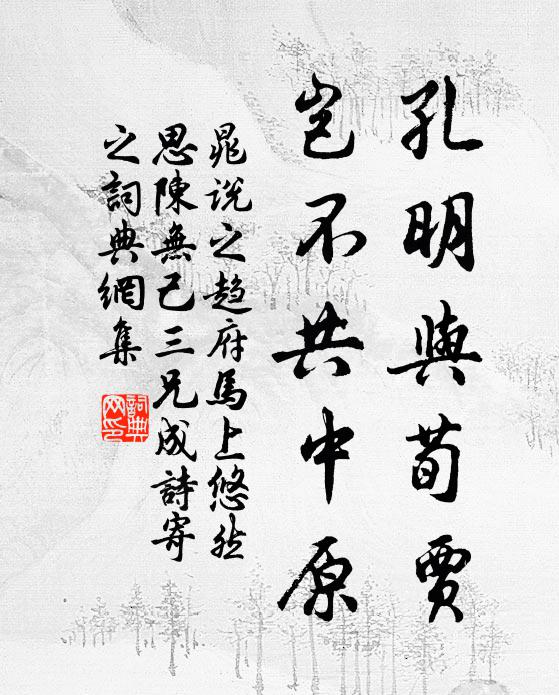 孔明與荀賈
豈不共中原
晁說之趙府馬上悠然
思陳無己三兄成詩寄
之詞典網集
詞典
网印